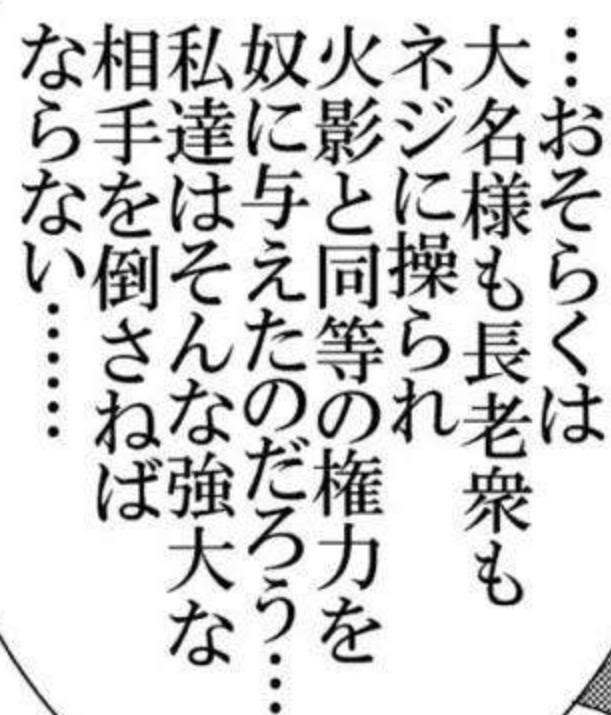 …おそらくは
大名様も長老衆も
ネジに操られ
火影と同等の権力を
奴に与えたのだろう…
私達はそんな強大な
相手を倒さねば
ならない……